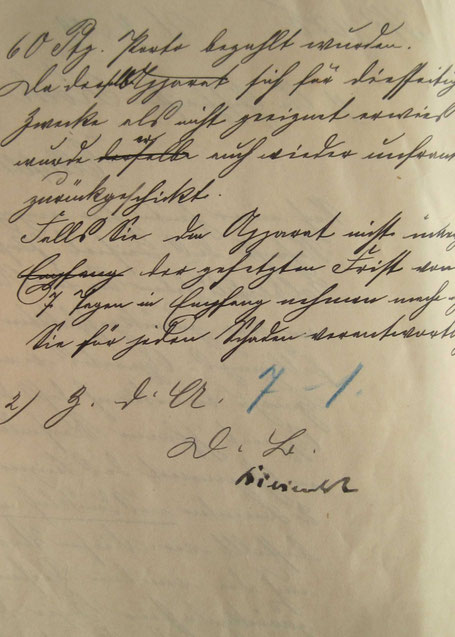 60 Pfg. Porto bezahlt wurden.
Da der Apparat sich für diesseitig
Zwecke als nicht geeignet erwies
wurde er auch wieder unfran
zurückgeschickt.
Falls Sie den Apparat nicht
Empfang der gesetzten Frist von
7 Tagen in Empfang nehmen mache
Sie für jeden Schaden verantwortl
2) Z. d. A. 7-1.
D. L.